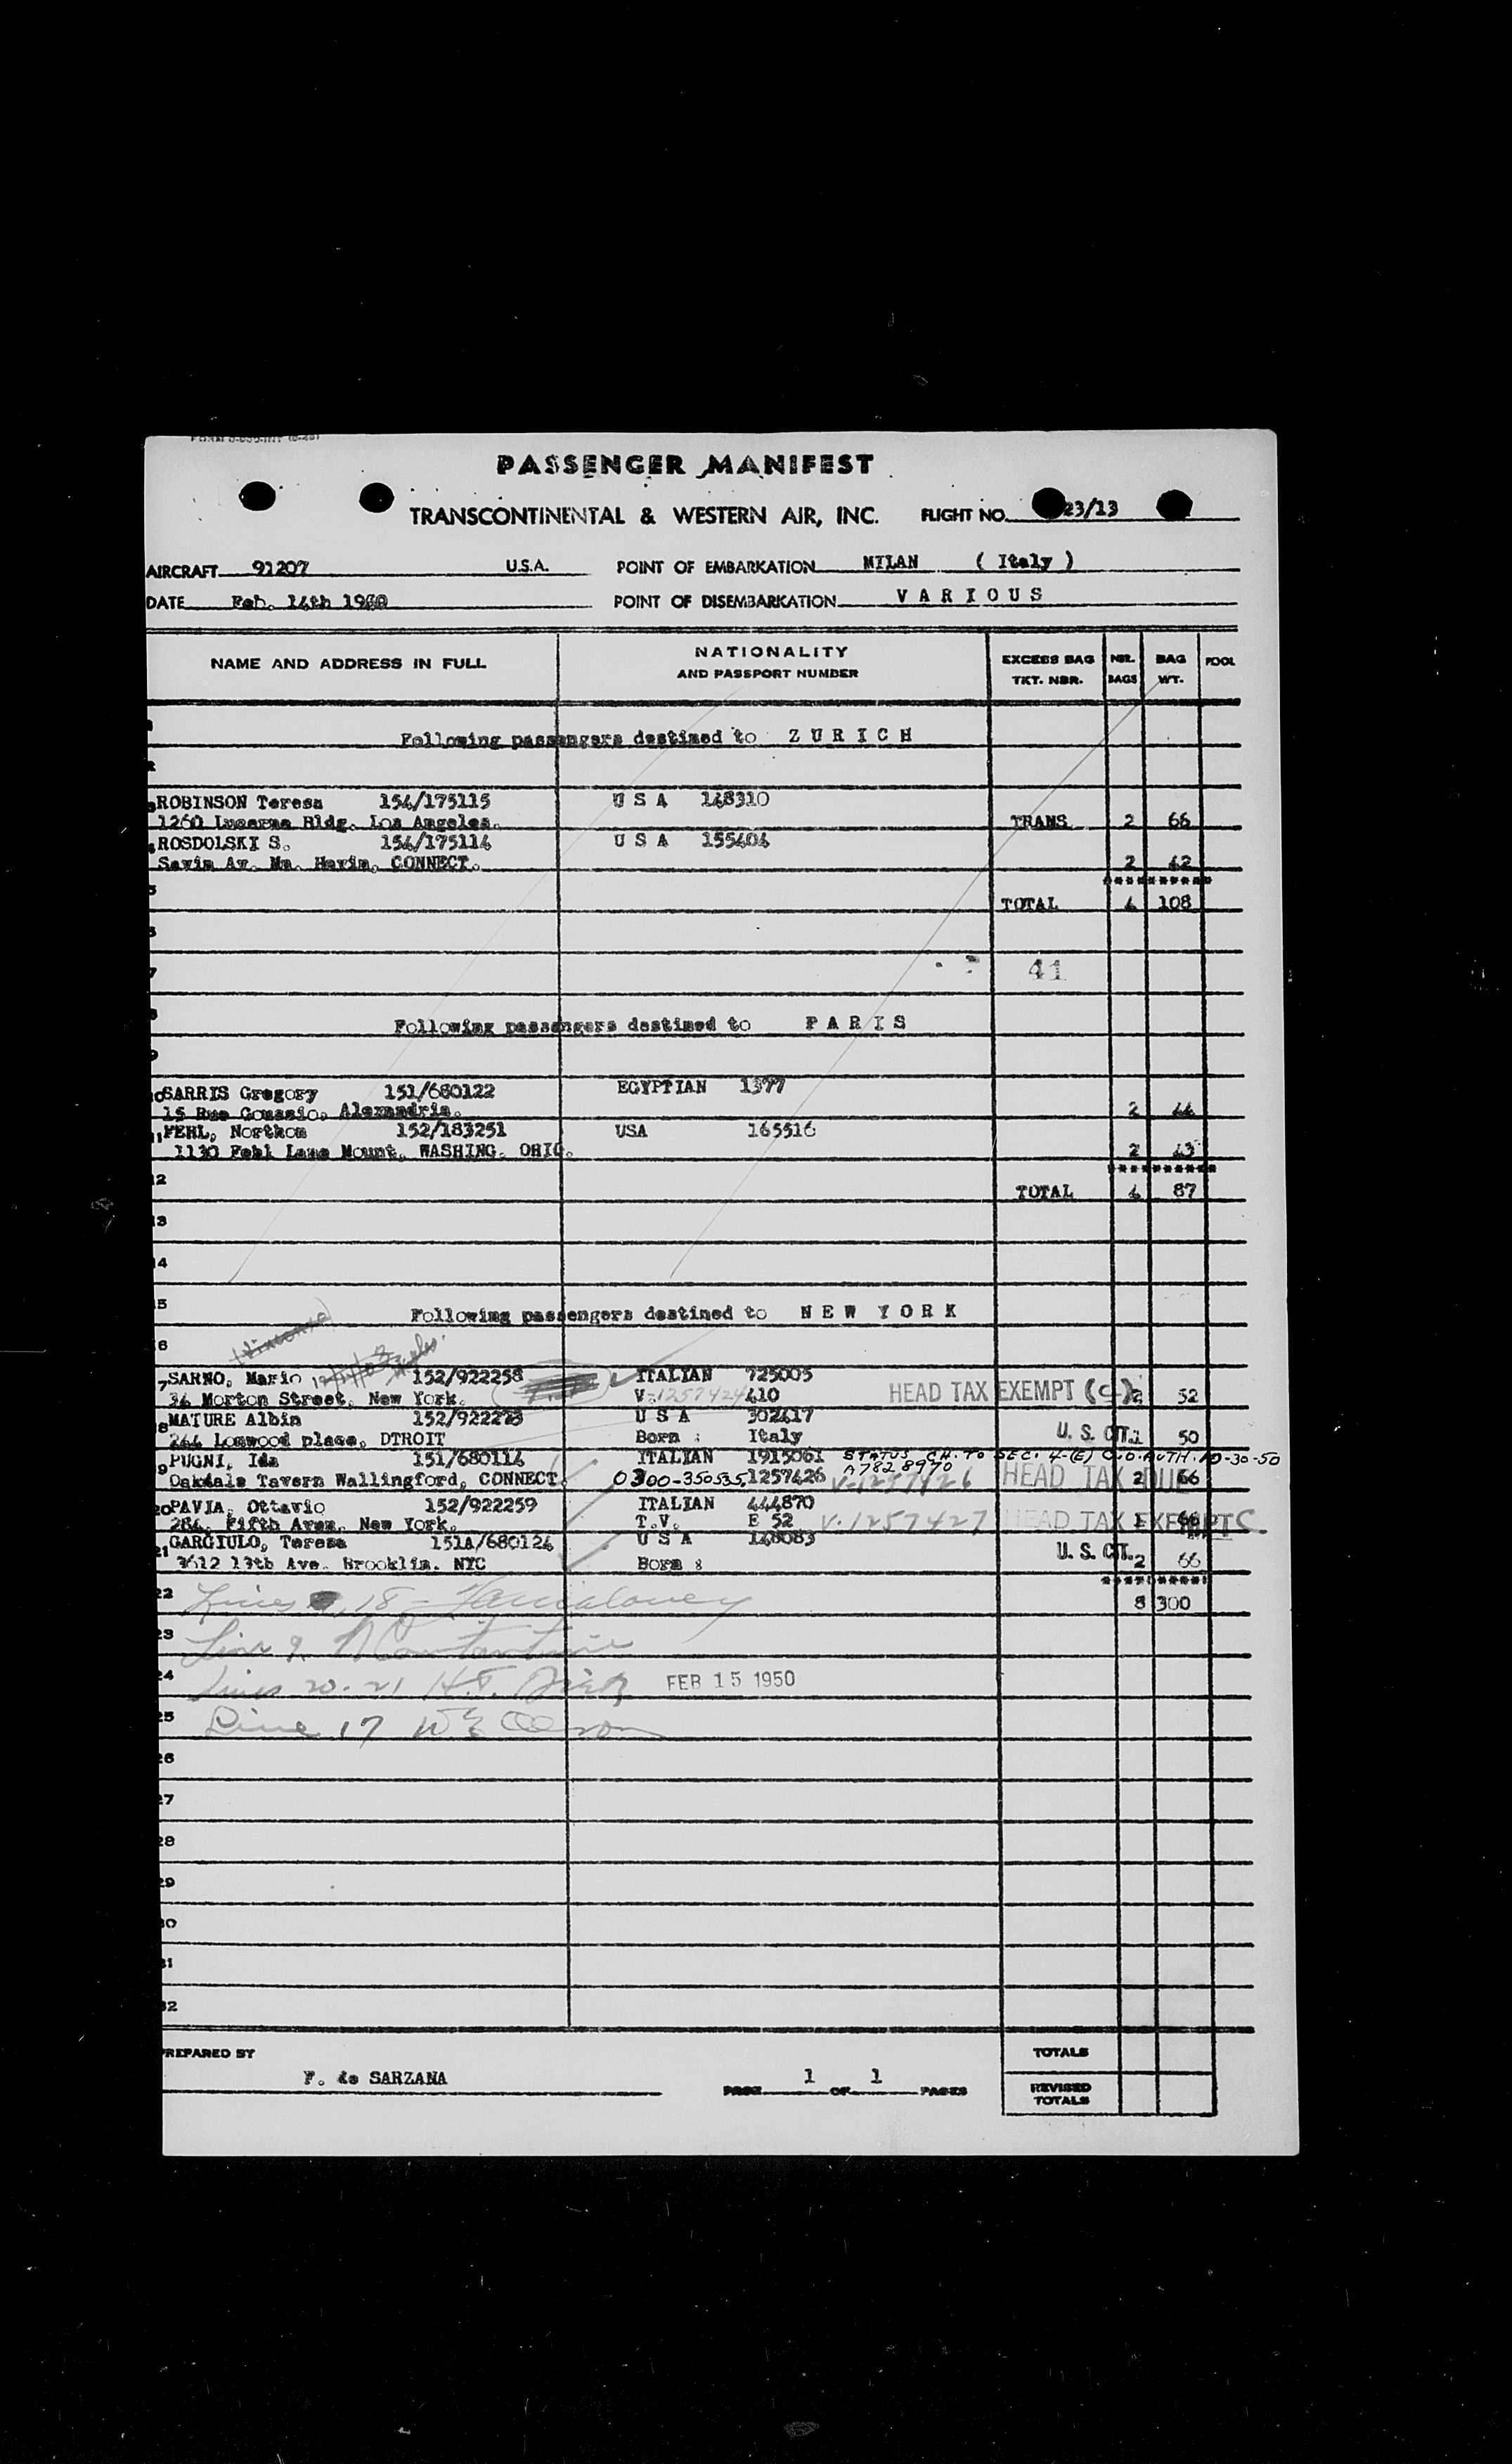 PASSENGER MANIFEST
TRANSCONTINENTAL & WESTERN AIR, INC. FLIGHT NO. 23/13
AIRCRAFT 91207 U.S.A. POINT OF EMBARKATION MILAN ( Italy )
DATE Feb. 14th POINT OF DISEMBARKATION V A R I O U S
NAME AND ADDRESS IN FULL NATIONALITY AND PASSPORT NUMBER EXCESS BAG TKT. NBR. NBR. BAGS BAG WT. POOL
Following passengers destined to Z U R I C H
ROBINSON Teresa 154/175115 U S A 148310
1260 Bldg. Los Angeles. TRANS. 2 66
ROSDOLSKI S. 154/175114 U S A 155404
Savin Av. Wn. Havin, CONNECT. 2 42
**********
TOTAL 4 108
41
Following passengers destined to P A R I S
SARRIS Gregory 151/680122 EGYPTIAN 1377
15 Rue Alexandria. 2 44
11 FEHL, Northom 152/183251 USA 165516
1130 Fehl Lane Mount. WASHING. OHIO. 2 43
**********
12 TOTAL 4 87
13
14
15 Following passengers destined to N E W Y O R K
16
SARNO, Mario 152/922258 ITALIAN 725005
34 Morton Street, New York. V-1257424 410 HEAD TAX EXEMPT (C) 2 52
MATURE Albin 152/922273 U S A 302417
244 place, DTROIT Born : Italy U. S. CIT. 1 50
PUGNI, Ida 151/680114 ITALIAN 1915061 STATUS CH. TO SEC. 4-(E) C.O. AUTH. 10-30-50
A7828970
Oakdale Tavern Wallingford, CONNECT. 0300-350535, 1257426 V-1257426 HEAD TAX DUE 2 66
20 PAVIA, Ottavio 152/922259 ITALIAN 444870
284, Fifth Aven. New York. T.V. E 52 V-1257427 HEAD TAX EXEMPT C. 1 66
21 GARGIULO, Teresa 151A/680124 U S A 148083
3612 13th Ave. Brooklin. NYC Born : U. S. CIT. 2 66
**********
22 Lines 18 8 300
23 Line 9.
24 Lines 20-21 H.T. FEB 15 1950
25 Line 17
26
27
28
29
30
31
32
PREPARED BY F. de SARZANA PAGE 1 OF 1 PAGES
TOTALS
REVISED TOTALS